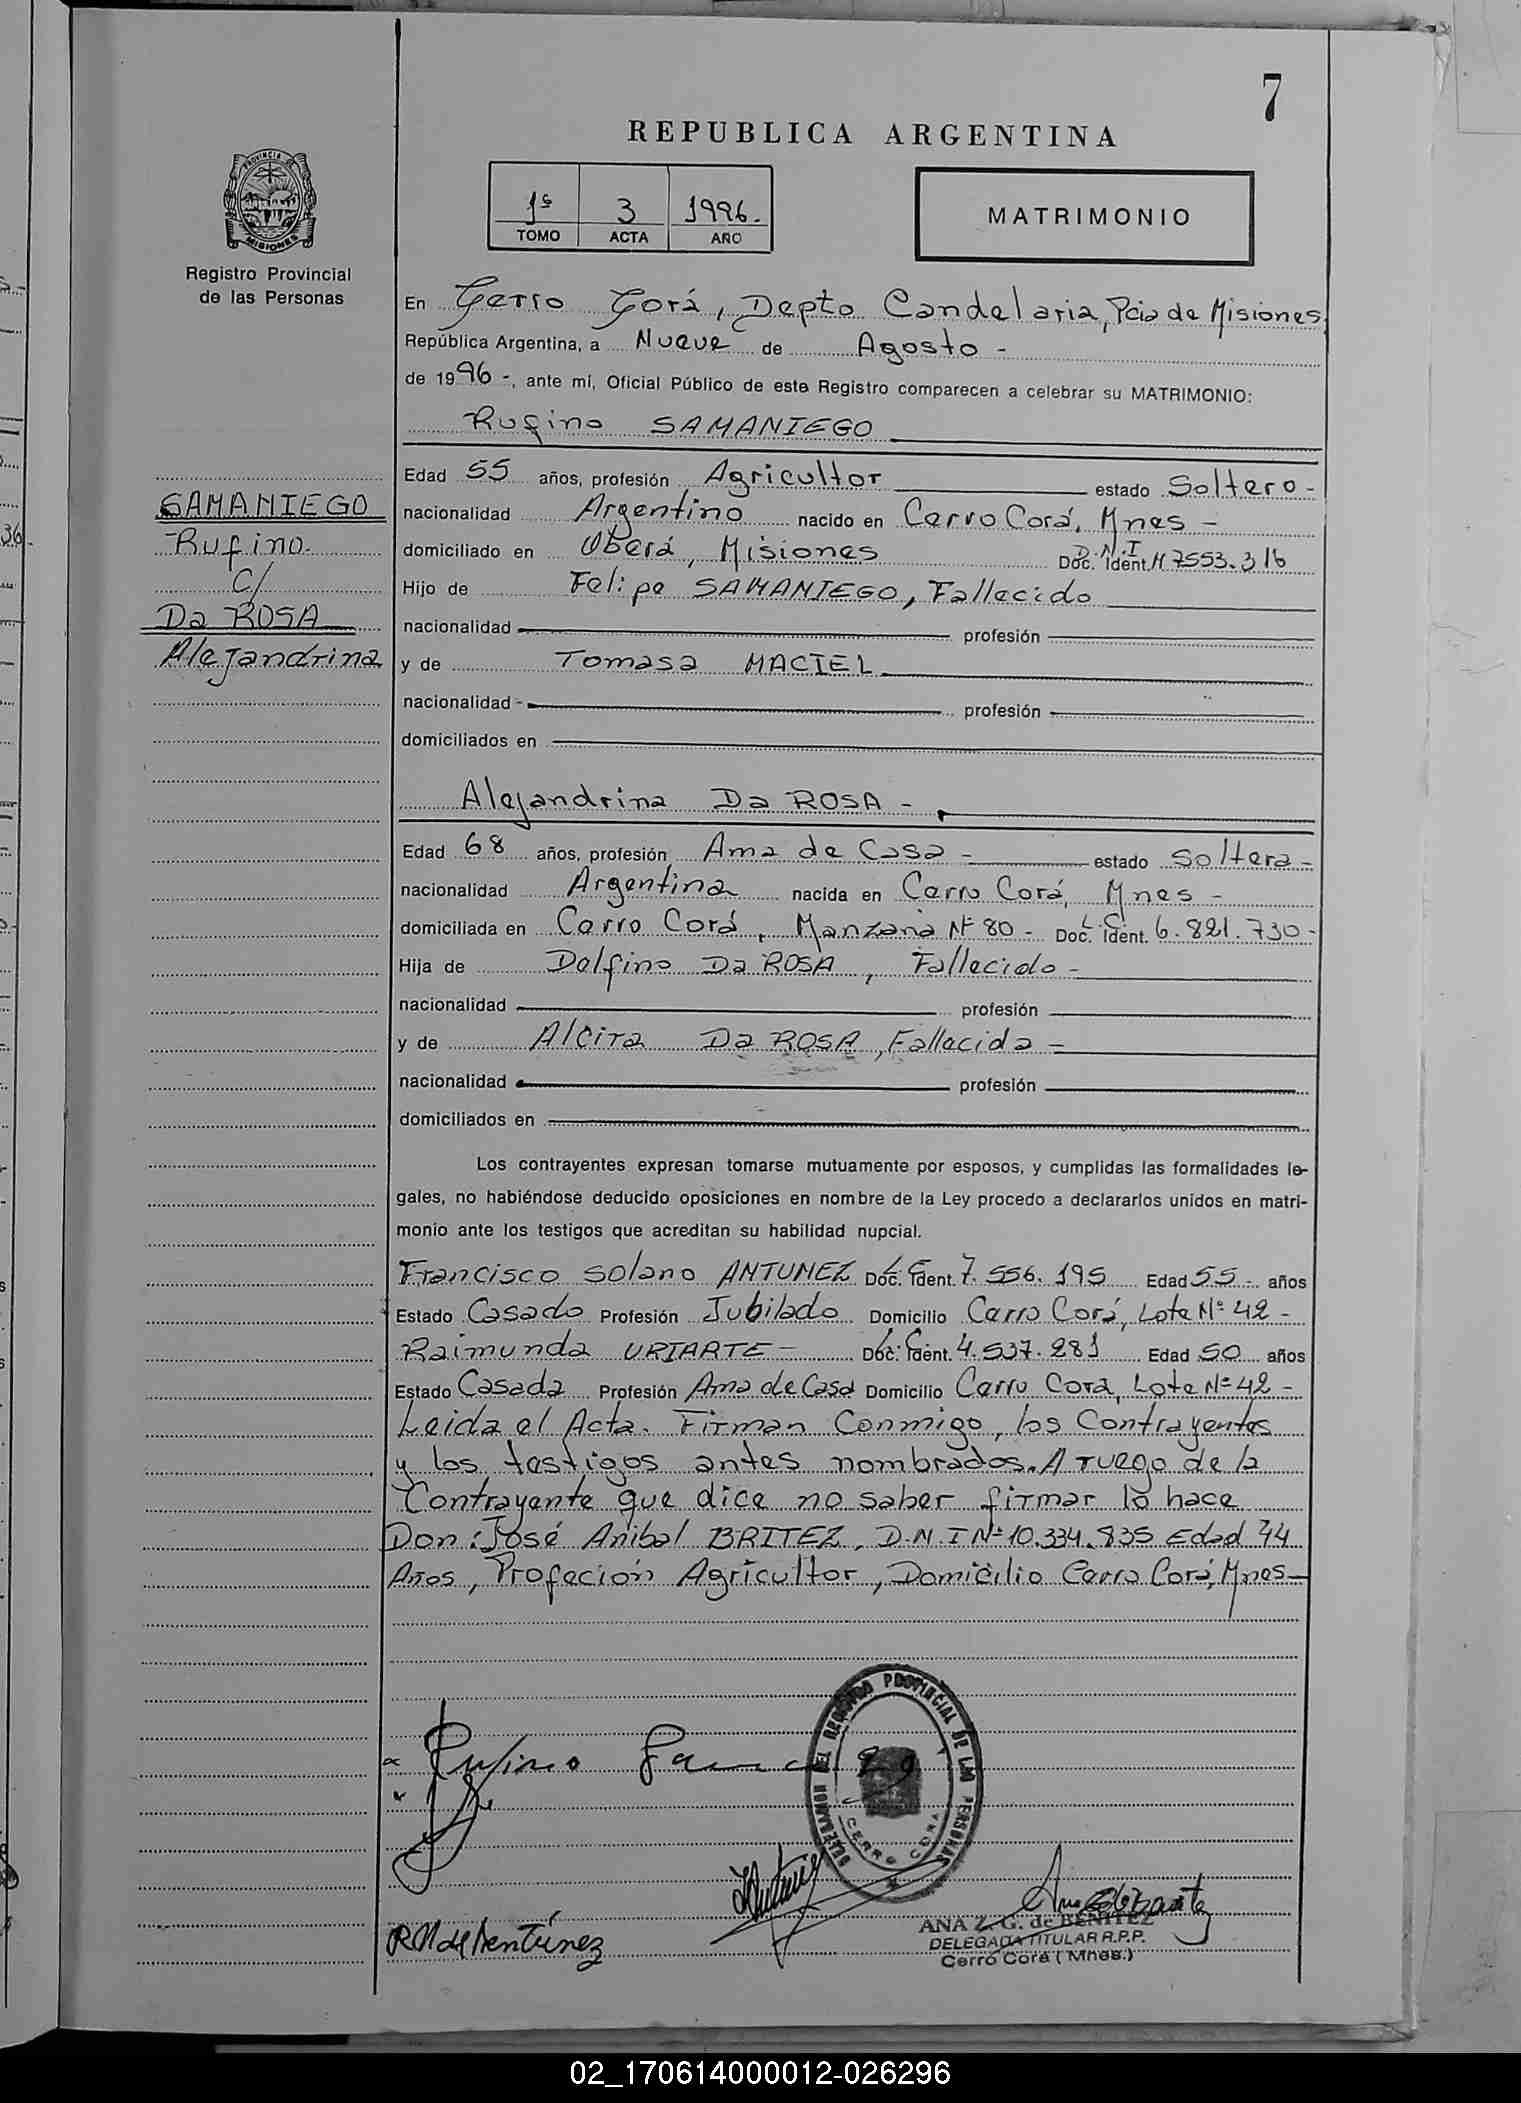 7
REPUBLICA ARGENTINA
PROVINCIA DE
MISIONES
Registro Provincial
de las Personas
1º 3 1996.
TOMO ACTA AÑO
MATRIMONIO
En Cerro Corá, Depto Candelaria, Pcia de Misiones
República Argentina, a Nueve de Agosto -
de 1996-, ante mí, Oficial Público de este Registro comparecen a celebrar su MATRIMONIO:
Rufino SAMANIEGO
Edad 55 años, profesión Agricultor estado Soltero-
nacionalidad Argentino nacido en Cerro Corá, Mnes -
domiciliado en Oberá, Misiones D.N.I Doc. Ident. M 7553.316
Hijo de Felipe SAMANIEGO, Fallecido
nacionalidad profesión
y de Tomasa MACIEL
nacionalidad - profesión
domiciliados en
SAMANIEGO
Rufino.
C/
Da ROSA
Alejandrina
Alejandrina Da ROSA -
Edad 68 años, profesión Ama de Casa - estado Soltera-
nacionalidad Argentina nacida en Cerro Corá, Mnes -
domiciliada en Cerro Corá, Manzana Nº 80 - L.C. Doc. Ident. 6.821.730-
Hija de Delfino Da ROSA, Fallecido-
nacionalidad profesión
y de Alcira Da ROSA, Fallecida -
nacionalidad profesión
domiciliados en
Los contrayentes expresan tomarse mutuamente por esposos, y cumplidas las formalidades le-
gales, no habiéndose deducido oposiciones en nombre de la Ley procedo a declararlos unidos en matri-
monio ante los testigos que acreditan su habilidad nupcial.
Francisco Solano ANTUNEZ L.E Doc. Ident. 7.556.195 Edad 55- años
Estado Casado Profesión Jubilado Domicilio Cerro Corá, Lote Nº 42 -
Raimunda URIARTE- L.C Doc. Ident. 4.537.281 Edad 50 años
Estado Casada Profesión Ama de Casa Domicilio Cerro Corá, Lote Nº 42 -
Leida el Acta. Firman Conmigo, los Contrayentes
y los testigos antes nombrados. A ruego de la
Contrayente que dice no saber firmar lo hace
Don: José Anibal BRITEZ, D.N.I Nº 10.334.835 Edad 44
Años, Profeción Agricultor, Domicilio Cerro Corá, Mnes-
Rufino
DELEGACION DEL REGISTRO PROVINCIAL DE LAS PERSONAS
CERRO CORA
R U de Antúnez
ANA Z. G. de BENITEZ
DELEGADA TITULAR R.P.P.
Cerro Corá (Mnes.)
02_170614000012-026296